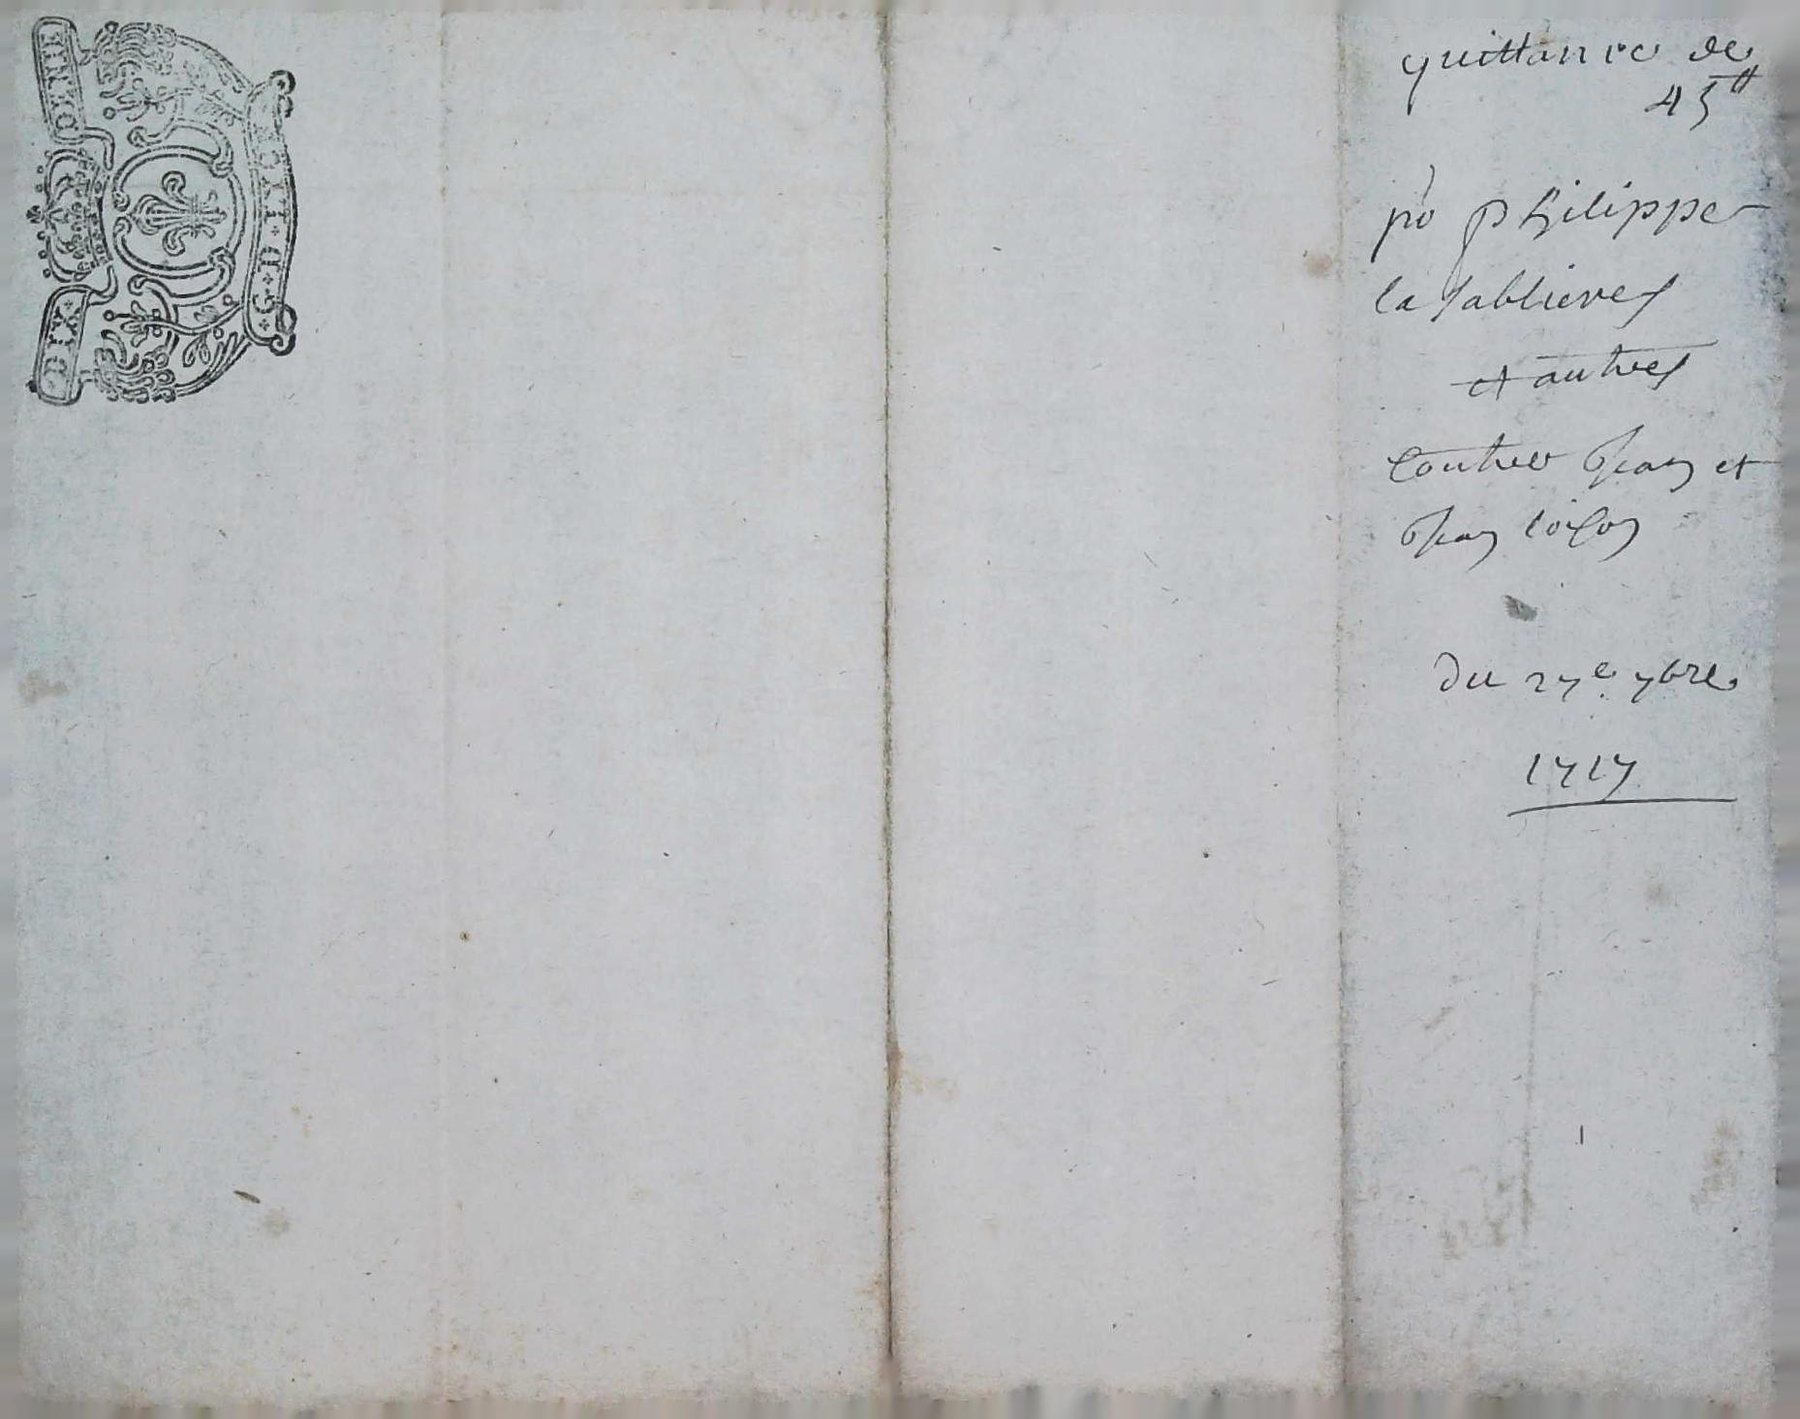 DIX DENIE
quittance de
45tt
po philippe
la sablieres
et autres
Contre Jean et
Jean loison
Du 27e 7bre
1717